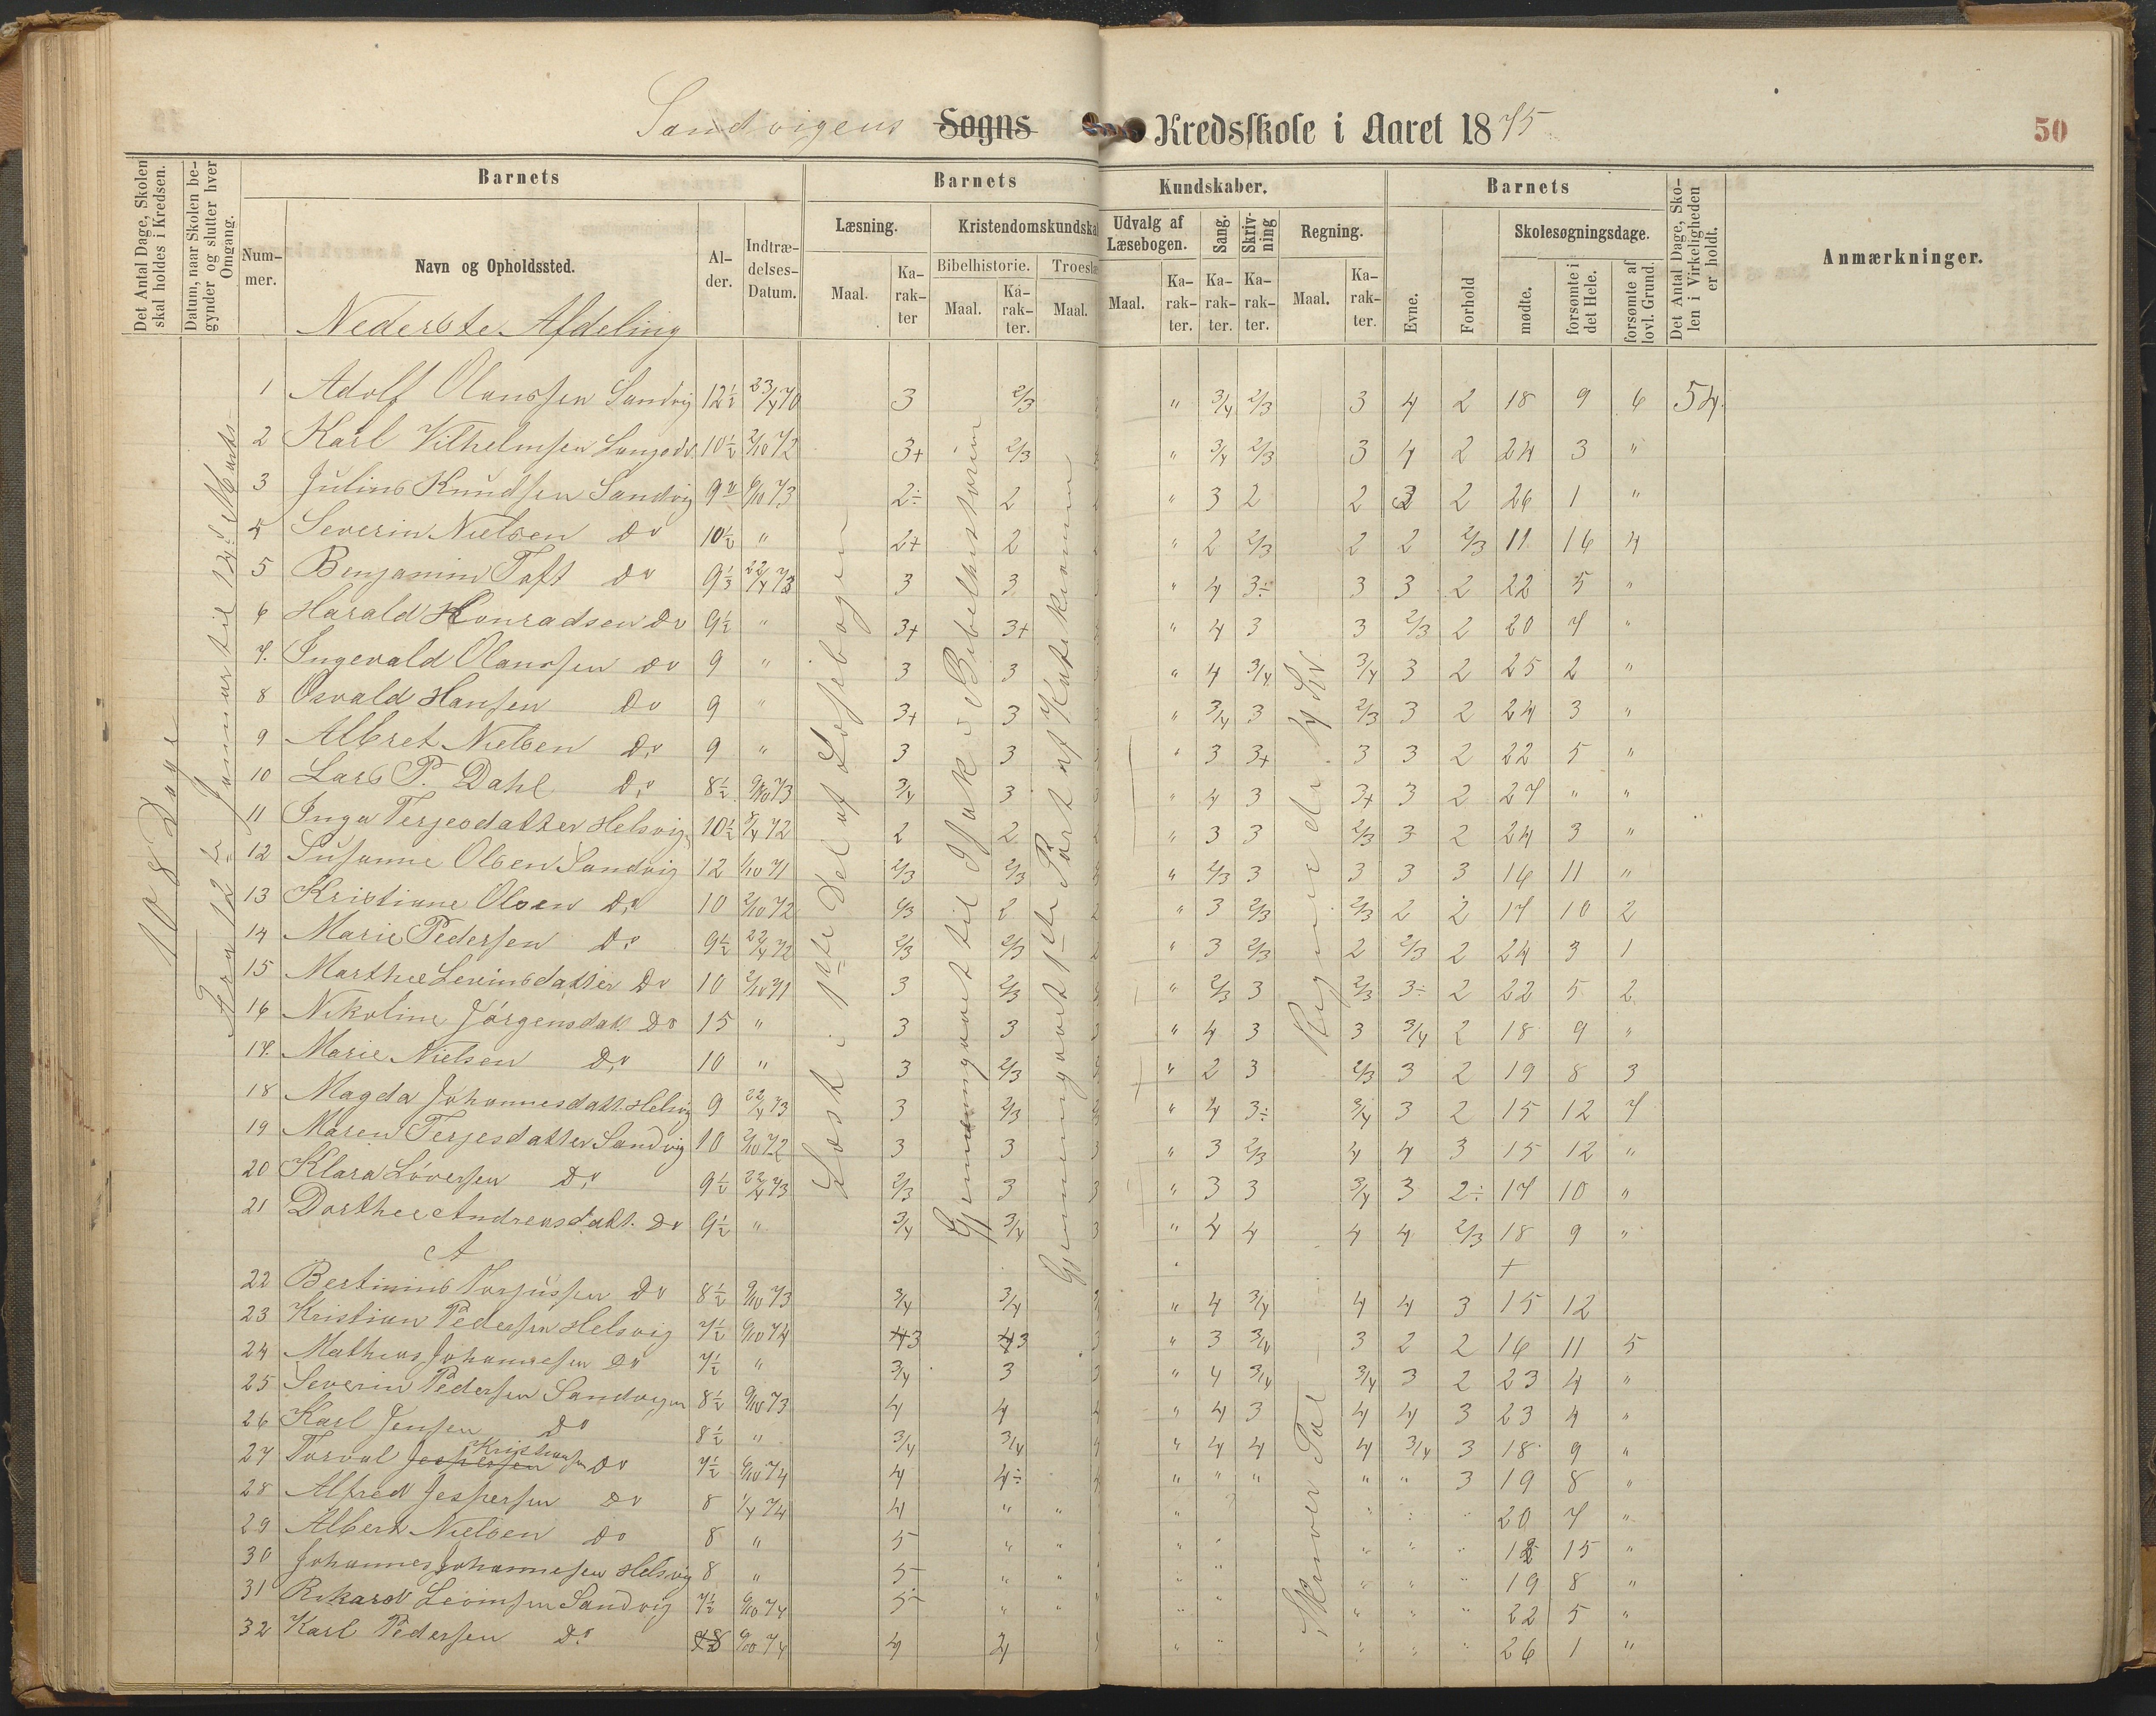 Sandvigens Sogns Kredsskole i Aaret 1875
50
Det Antal Dage, Skolen skal holdes i Kredsen.
Datum, naar Skolen begynder og slutter hver Omgang.
Barnets
Nummer.
Navn og Opholdssted.
Alder.
Indtrædelses-Datum.
Barnets Kundskaber.
Læsning.
Maal.
Karakter
Kristendomskundskab
Bibelhistorie.
Maal.
Karakter.
Troeslæ
Maal.
Udvalg af Læsebogen.
Maal.
Karakter.
Sang.
Karakter.
Skrivning
Karakter.
Regning.
Maal.
Karakter.
Barnets
Evne.
Forhold
Skolesøgningsdage.
mødte.
forsømte i det Hele.
forsømte af lovl. Grund.
Det Antal Dage, Skolen i Virkeligheden er holdt.
Anmærkninger.
Nederste Afdeling
108 Dage
Fra 12te Januar til 12te Marts
Læst i 1ste Del af Læsebogen
Gjennemgaaet til Isak i Bibelhistorien
Gjennemgaaet 1ste Part af Katekismen
Regne de
Skriver Tal
1 Adolf Olaussen Sandvig 12½ 23/4 70 3 2/3 " 3/4 2/3 3 4 2 18 9 6 54.
2 Karl Vilhelmsen 10½ 2/10 72 3+ 2/3 " 3/4 2/3 3 4 2 24 3 "
3 Julius Knudsen Sandvig 9 6/10 73 2÷ 2 " 3 2 2 3 2 26 1 "
4 Severin Nielsen Do 10½ " 2+ 2 " 2 2/3 2 2 2/3 11 16 4
5 Benjamin Toft do 9⅓ 22/4 73 3 3 " 4 3÷ 3 3 2 22 5 "
6 Harald Konradsen Do 9½ " 3+ 3+ " 4 3 3 2/3 2 20 7 "
7. Ingevald Olaussen do 9 " 3 3 " 4 3/4 3/4 3 2 25 2 "
8 Osvald Hansen Do 9 " 3+ 3 " 3/4 3 2/3 3 2 24 3 "
9 Albret Nielsen Do 9 " 3 3 " 3 3+ 3 3 2 22 5 "
10 Lars P. Dahl Do 8½ 9/10 73 3/4 3 " 4 3 3+ 3 2 27 " "
11 Inga Terjesdatter Helsvig 10½ 8/4 72 2 2 " 3 3 2/3 3 2 24 3 "
12 Susanne Olsen Sandvig 12 1/10 71 2/3 2/3 " 2/3 3 3 3 3 16 11 "
13 Kristiane Olsen Do 10 2/10 72 2/3 2 " 3 2/3 2/3 2 2 17 10 2
14 Marie Pedersen Do 9½ 22/4 72 2/3 2/3 " 3 2/3 2 2/3 2 24 3 1
15 Marthee Levinsdatter Do 10 2/10 71 3 2/3 " 2/3 3 2/3 3÷ 2 22 5 2
16 Nikoline Jørgensdatt. Do 15 " 3 3 " 4 3 3 3/4 2 18 9 "
17. Marie Nielsen Do 10 " 3 2/3 " 2 3 2/3 3 2 19 8 3
18 Magda Johannesdatt. Helsvig 9 22/4 73 3 2/3 " 4 3÷ 3/4 3 2 15 12 7
19 Maren Terjesdatter Sandvig 10 2/10 72 3 3 " 3 2/3 4 4 3 15 12 "
20 Klara Løversen Do 9½ 22/4 73 2/3 3 " 3 3 3/4 3 2÷ 17 10 "
21 Dorthee Andreasdatt. Do 9½ " 3/4 3/4 " 4 4 4 4 2/3 18 9 "
A
22 Bertinius Do 8½ 9/10 73 3/4 3/4 " 4 3/4 4 4 3 15 12
23 Kristian Pedersen Helsvig 7½ 6/10 74 3 3 " 3 3/4 3 2 2 16 11 5
24 Mathias Johannesen Do 7½ " 3/4 3 " 4 3/4 3/4 3 2 23 4 "
25 Severin Pedersen Sandvigen 8½ 9/10 73 4 4 " 4 3 4 4 3 23 4 "
26 Karl Jensen Do 8½ " 3/4 3/4 " 4 4 4 3/4 3 18 9 "
27 Torval Jespersen Kristiansen Do 7½ 6/10 74 4 4÷ " " " " " 3 19 8 "
28 Alfred Jespersen Do 8 1/4 74 4 " " " 20 7 "
29 Albert Nielsen Do 8 " 5 " " " 15 "
30 Johannes Johannesen Helsvig 8 " 5 " " " 19 8 "
31 Rikard Levinsen Sandvig 7½ 6/10 74 5 " " " 22 5 "
32 Karl Pedersen Do 8 6/10 74 4 4 " 26 1 "